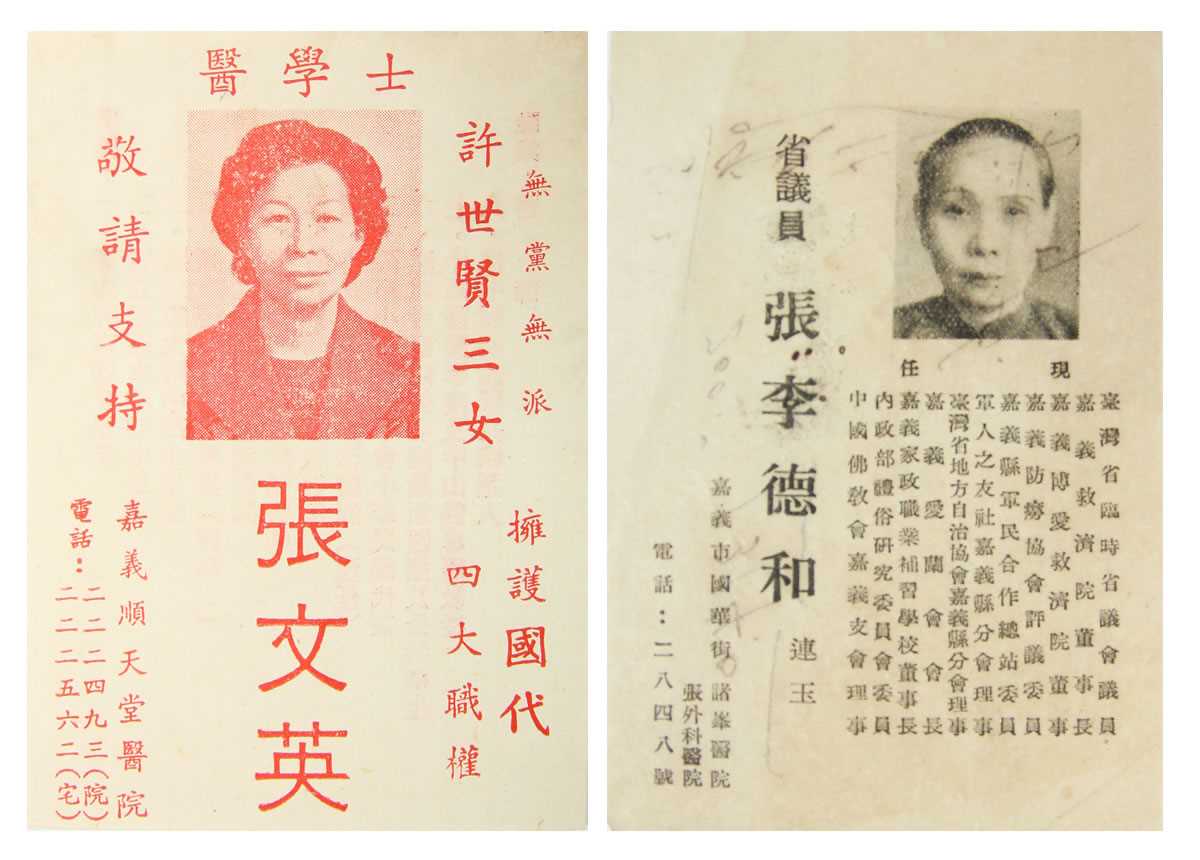 醫學士
無黨無派
許世賢三女
張文英
擁護國代
四大職權
敬請支持
嘉義順天堂醫院
電話:二二二四九三(院)
二二二五六二(宅)
現任
臺灣省臨時省議會議員
嘉義救濟院董事長
嘉義博愛救濟院董事
嘉義防癆協會評議委員
嘉義縣軍民合作總站委員
軍人之友社嘉義縣分會理事
臺灣省地方自治協會嘉義縣分會理事
嘉義愛蘭會會長
嘉義家政職業補習學校董事長
內政部禮俗研究委員會委員
中國佛教會嘉義支會理事
省議員 張李德和 連玉
嘉義市國華街 諸峯醫院
張外科醫院
電話:二八四八號